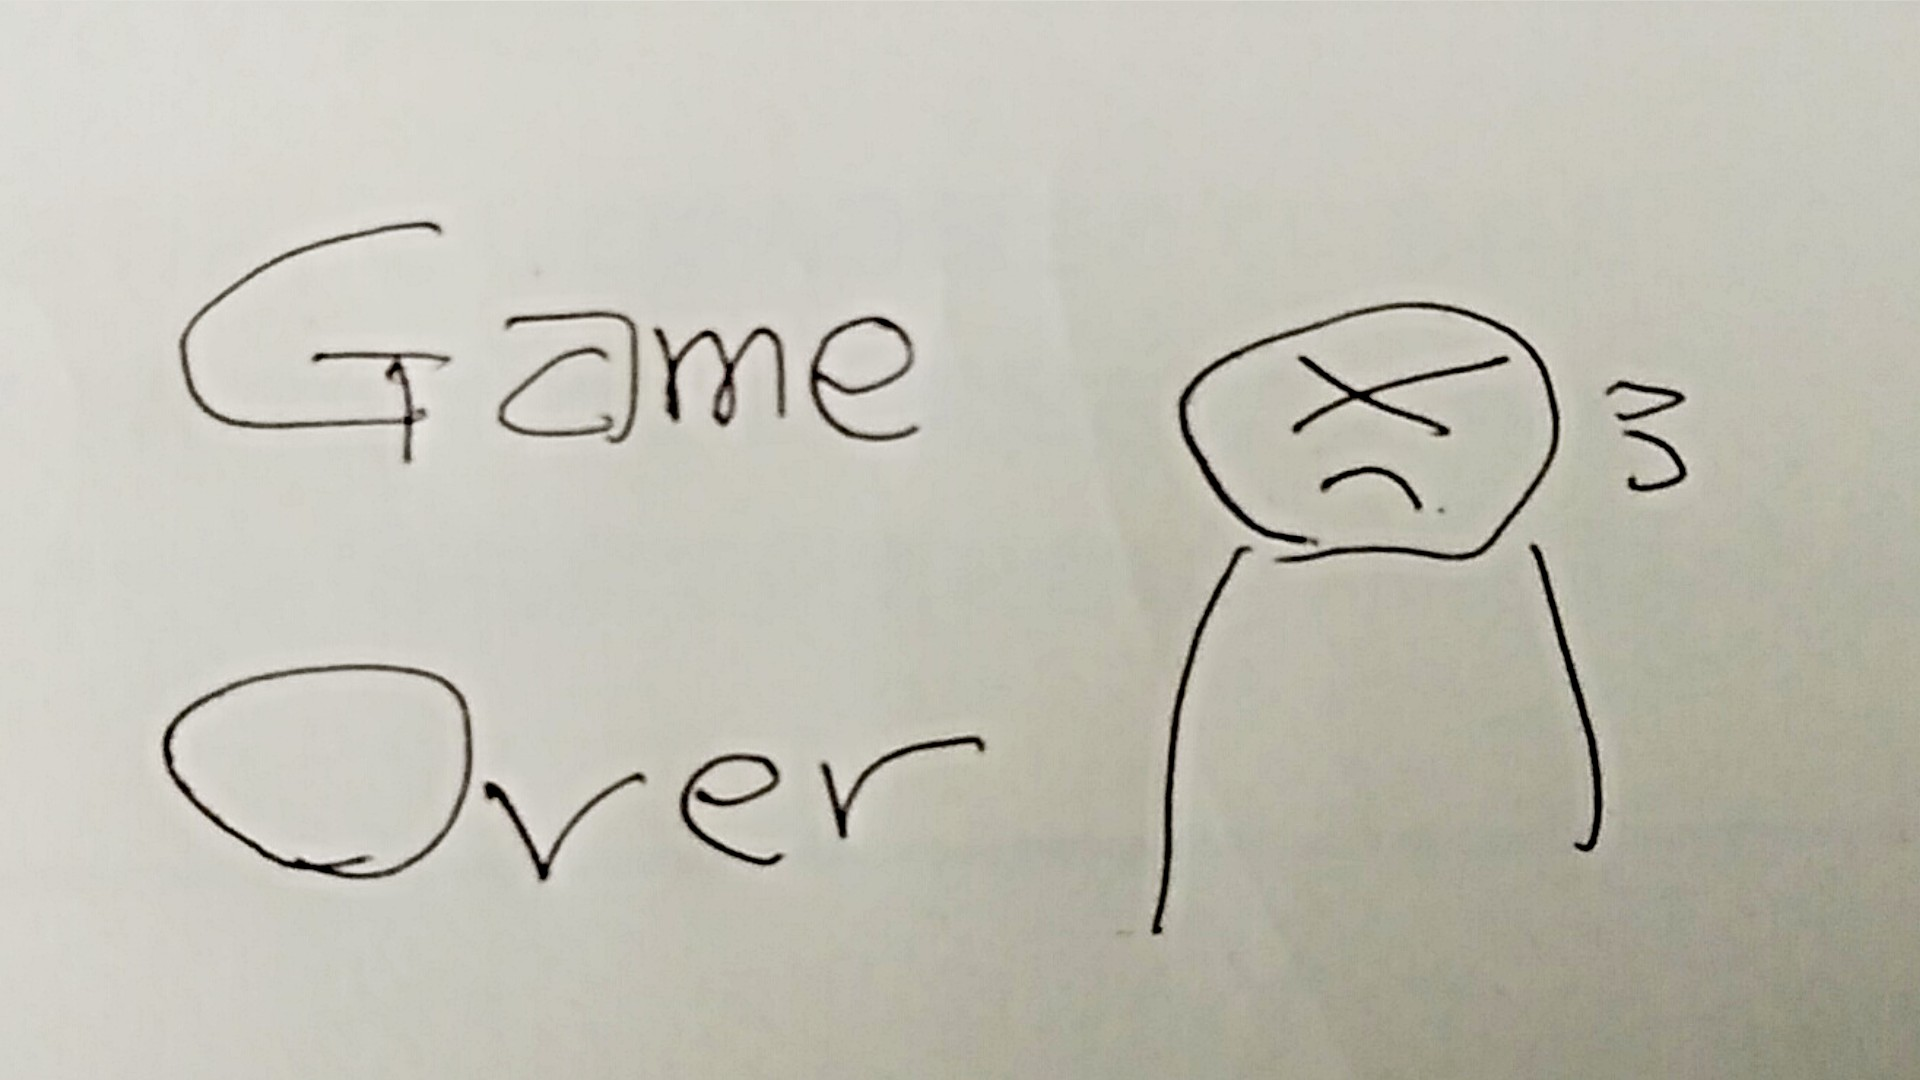 Game
Over